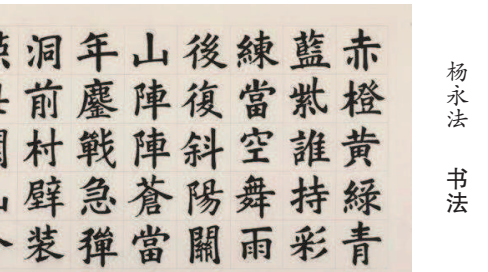 赤橙黄綠青
藍紫誰持彩
練當空舞雨
後復斜陽關
山陣陣蒼當
年鏖戰急彈
洞前村壁装
杨永法 书法